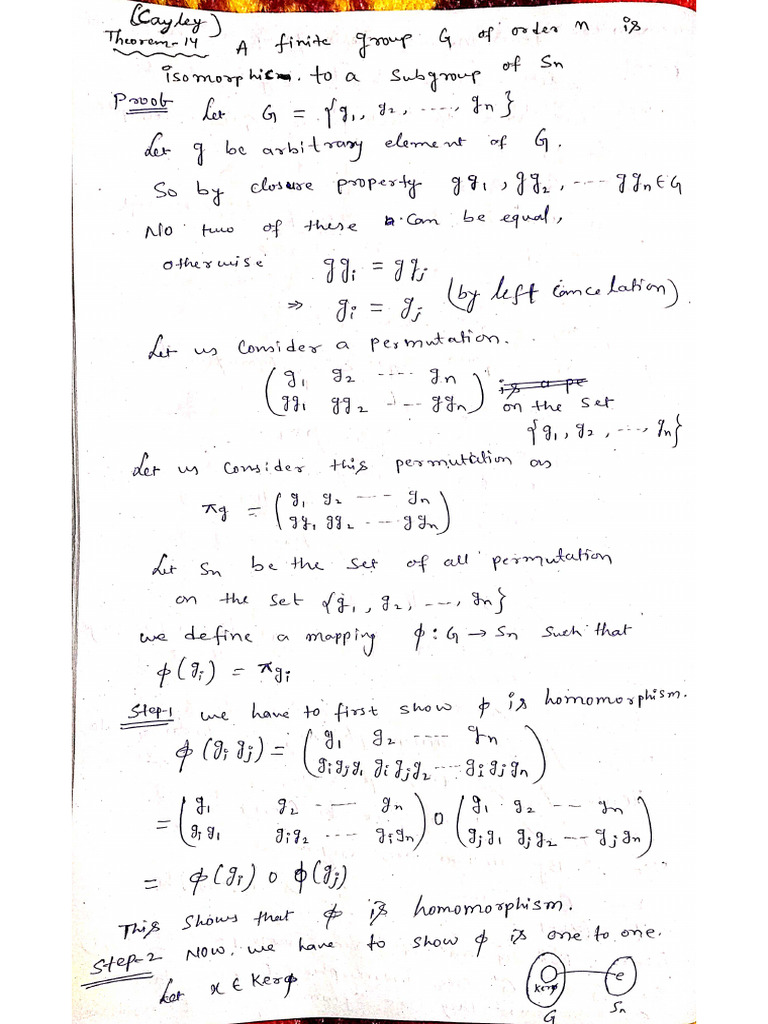 (Cayley)
Theorem-14 A finite group G of order n is
isomorphic to a subgroup of Sn
Proof Let G = {g1, g2, ....., gn}
Let g be arbitrary element of G.
So by closure property gg1, gg2, ---- ggn ∈ G
No two of these can be equal,
otherwise ggi = ggj
⇒ gi = gj (by left cancelation)
Let us consider a permutation.
(g1 g2 ---- gn
gg1 gg2 --- ggn) is a pe
on the set
{g1, g2, ---, gn}
Let us consider this permutation as
πg = (g1 g2 ---- gn
gg1 gg2 ---- ggn)
Let Sn be the set of all permutation
on the set {g1, g2, ---, gn}
we define a mapping ϕ: G → Sn such that
ϕ(gi) = πgi
Step-1 we have to first show ϕ is homomorphism.
ϕ(gi gj) = (g1 g2 ---- gn
gigjg1 gigjg2 ---- gigjgn)
= (g1 g2 ---- gn
gig1 gig2 ---- gign) o (g1 g2 -- gn
gjg1 gjg2 --- gjgn)
= ϕ(gi) o ϕ(gj)
This shows that ϕ is homomorphism.
Step-2 Now, we have to show ϕ is one to one.
Let x ∈ Kerϕ
Kerϕ e
G Sn